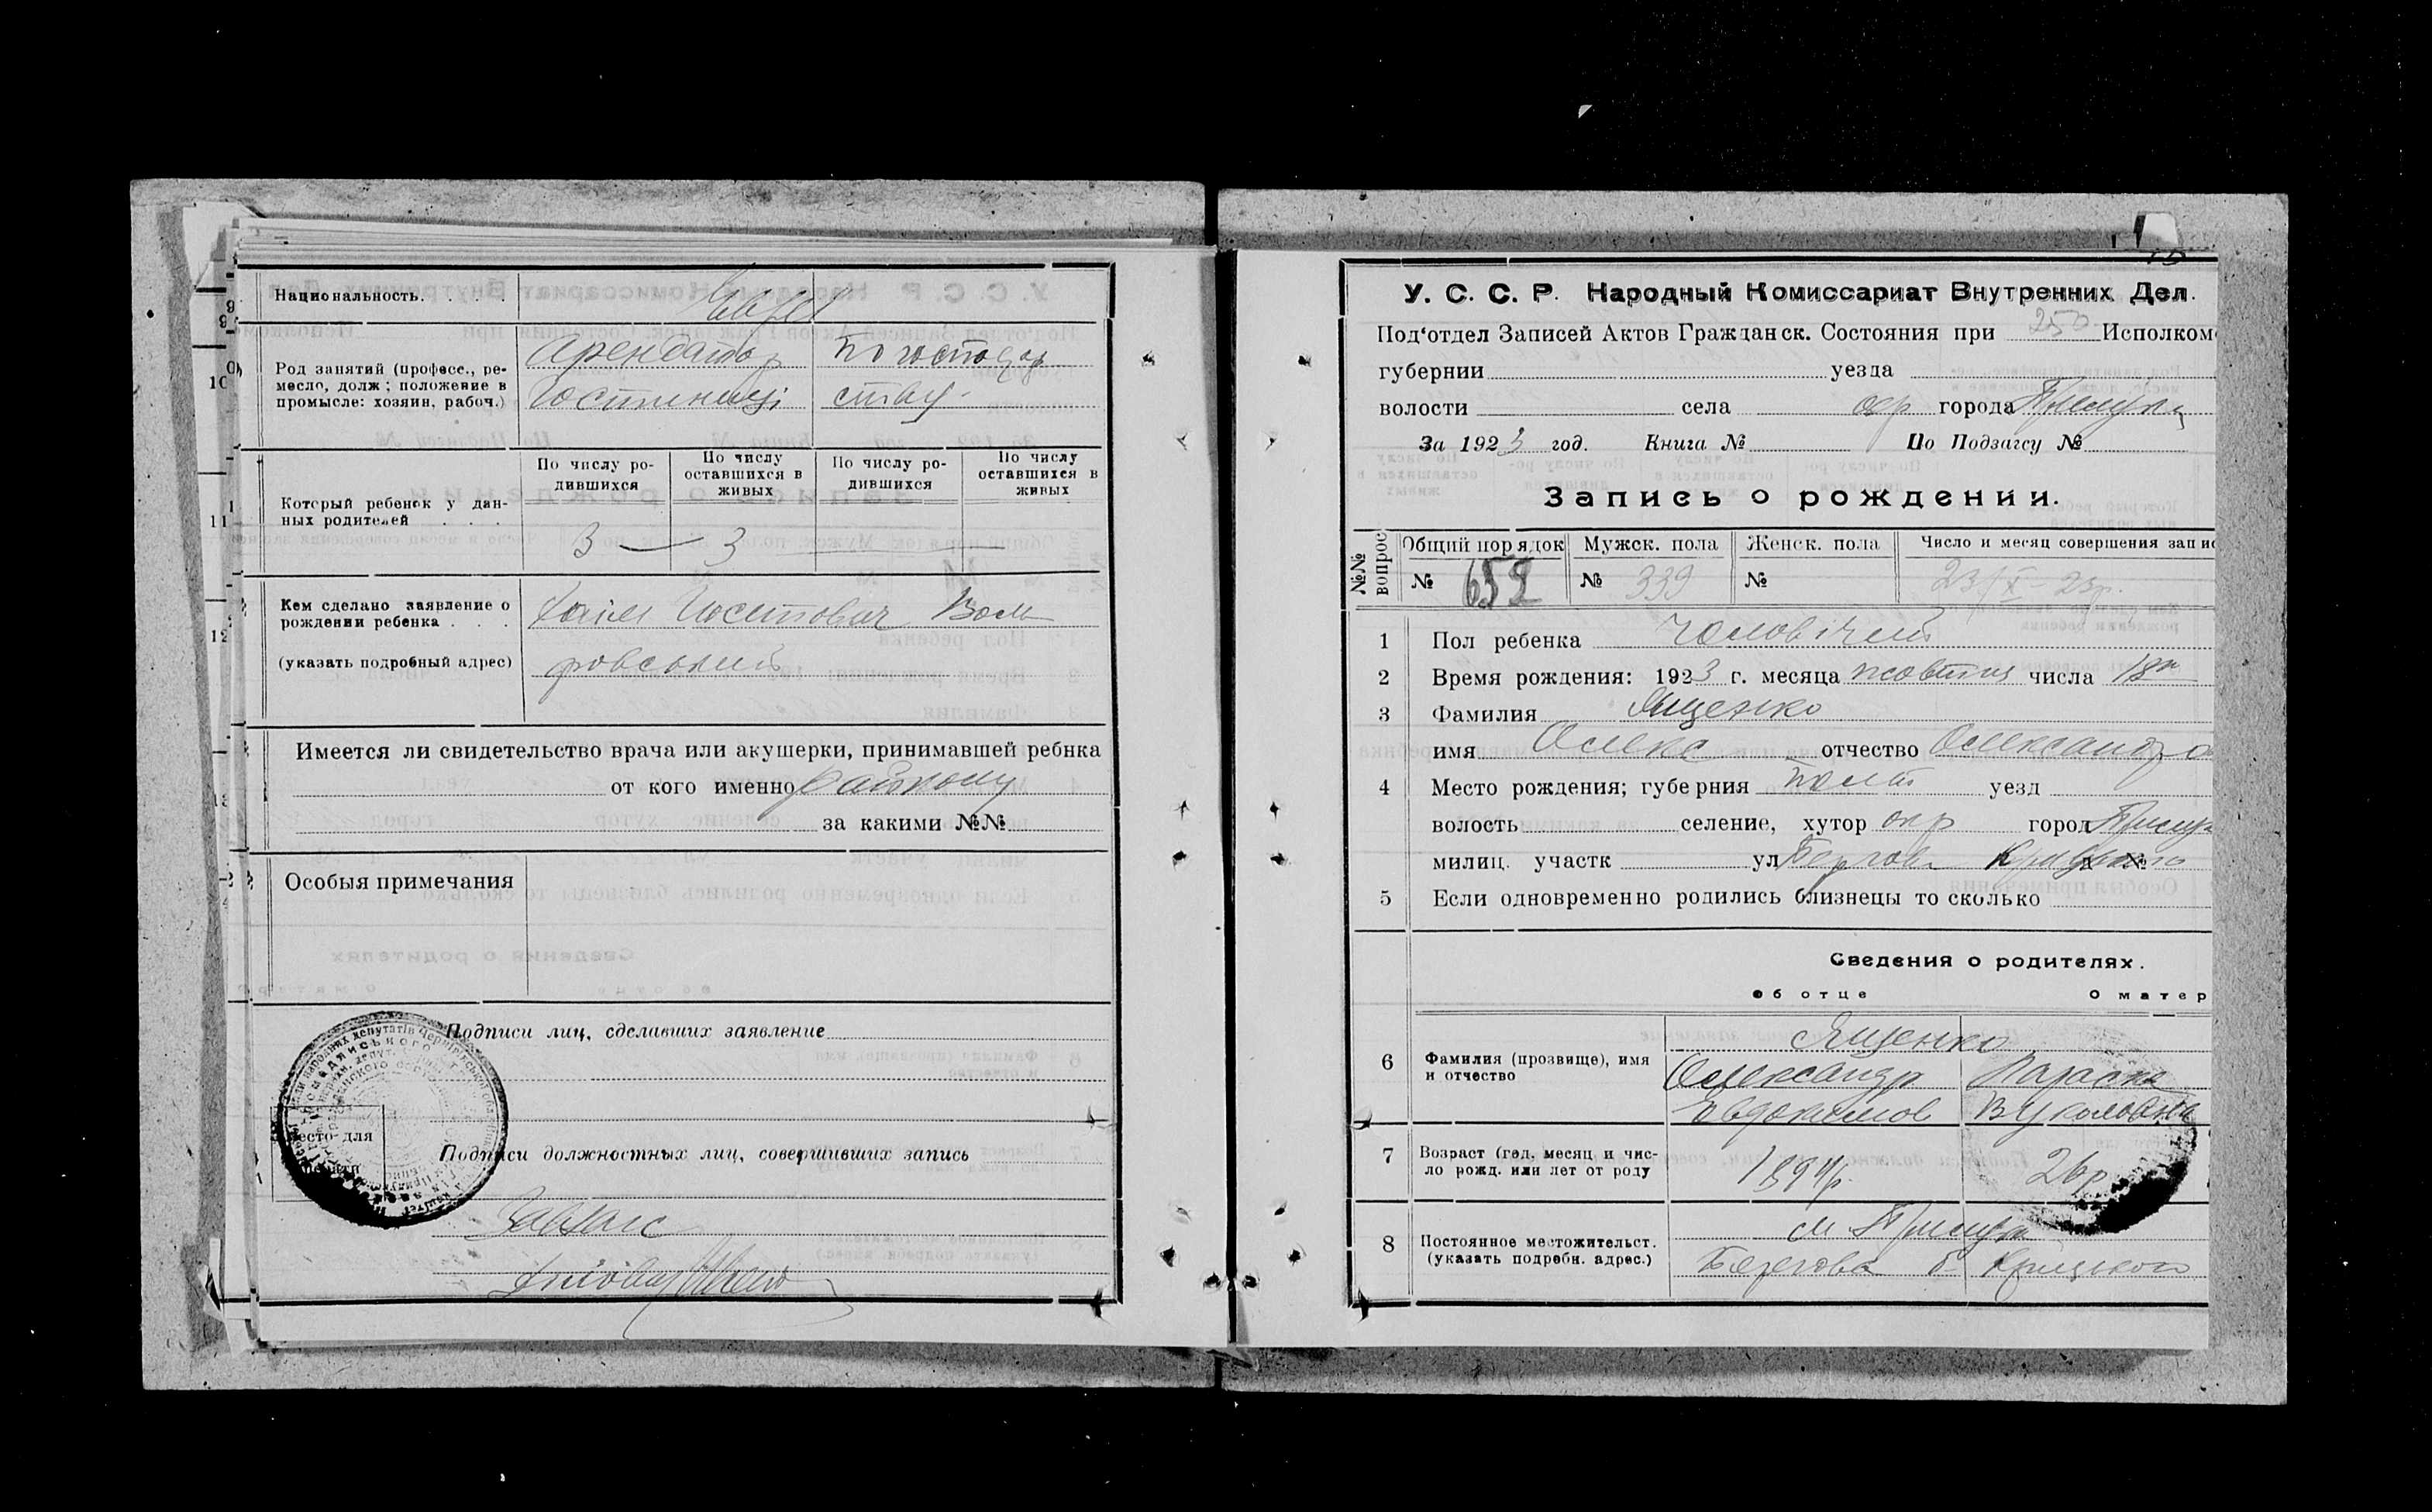 Национальность.
Евреї
Род занятий (професс., ре-
месло, долж; положение в
промысле: хозяин, рабоч.)
Арендатор
Гостиниці
По господар
ству
Который ребенок у дан-
ных родителей
По числу ро-
дившихся
По числу
оставшихся в
живых
По числу ро-
дившихся
По числу
оставшихся в
живых
3 — 3
Кем сделано заявление о
рождении ребенка . . .
(указать подробный адрес)
Хаїм Иосипович
Имеется ли свидетельство врача или акушерки, принимавшей ребнка
от кого именно
за какими №№
Особыя примечания
Подписи лиц, сделавших заявление
Место для
Подписи должностных лиц, совершивших запись
Завзагс
У. С. С. Р. Народный Комиссариат Внутренних Дел.
Под‘отдел Записей Актов Гражданск. Состояния при 250 Исполком
губернии уезда
волости села окр города Прилуки
За 1923 год. Книга № По Подзагсу №
Запись о рождении.
№№ вопрос
Общий порядок
Мужск. пола
Женск. пола
Число и месяц совершения запис
№ 652
№ 339
№
23/X-23р.
1 Пол ребенка Чоловічий
2 Время рождения: 1923 г. месяца жовтня числа 18
3 Фамилия Ященко
имя Олекс отчество Олександро
4 Место рождения; губерния Полт уезд
волость селение, хутор окр город Прилук
милиц. участк ул Берегова д. №
5 Если одновременно родились близнецы то сколько
Сведения о родителях.
об отце
О матер
6 Фамилия (прозвище), имя
и отчество
Ященко
Олександр
Евдокимов
Параска
Вуколовна
7 Возраст (год, месяц и чис-
ло рожд. или лет от роду
1894р.
26р
8 Постоянное местожительст.
(указать подробн. адрес.)
м Прилуки
Берегова б. Крицкого